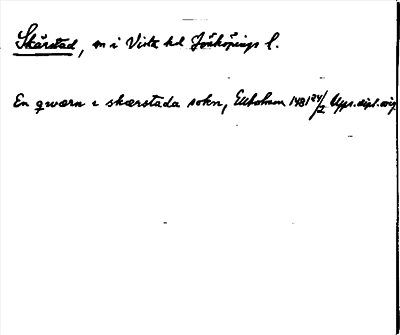 Skärstad, sn i Vista hd Jönköpings l.
En qwærn i skærstada sokn, Ekholmen 1481 24/2 Upps. dipl. orig